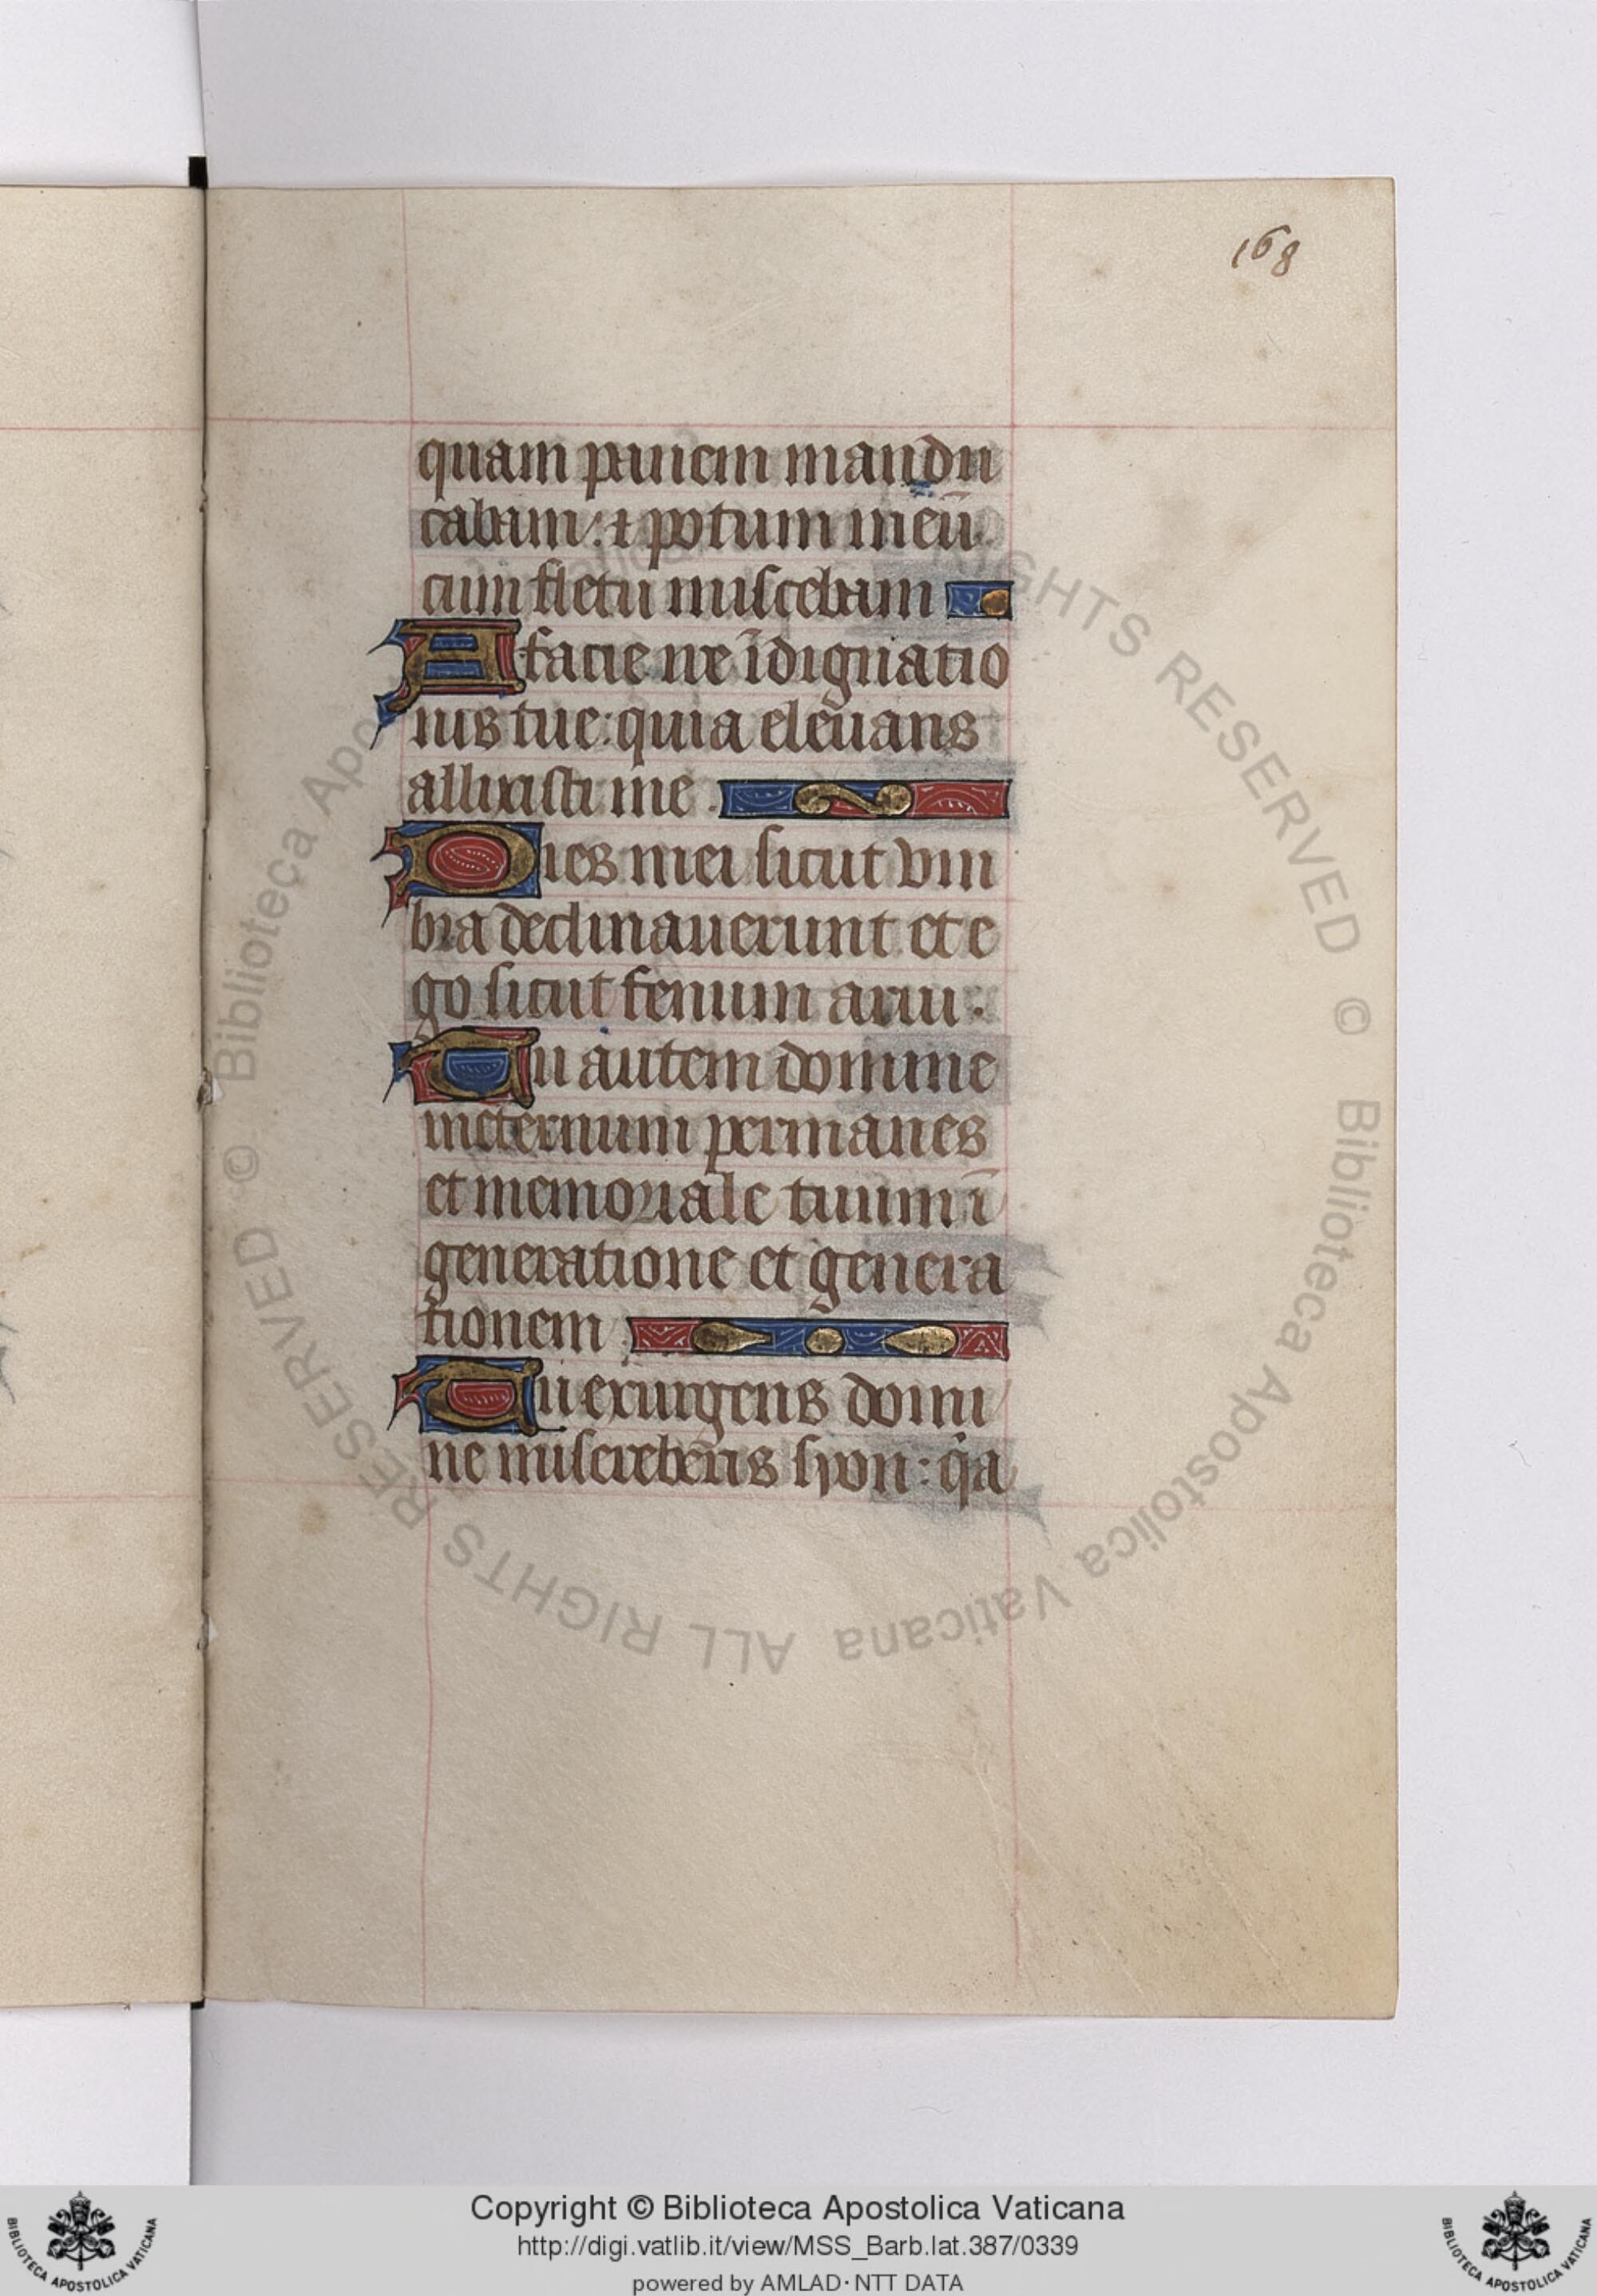 168
quam panem mandu
cabam: ⁊ potum meū
cum fletu miscebam
A facie ire īdignatio
nis tue: quia eleuans
allixisti me
Dies mei sicut vm
bra declinauerunt et e
go sicut fenum arui.
Tu autem domine
ineternum permanes
et memoriale tuum ī
generatione et genera
tionem
Tu exurgens domi
ne misereberis syon: qa
© Biblioteca Apostolica Vaticana ALL RIGHTS RESERVED © Biblioteca Apostolica Vaticana ALL RIGHTS RESERVED
Copyright © Biblioteca Apostolica Vaticana
http://digi.vatlib.it/view/MSS_Barb.lat.387/0339
powered by AMLAD·NTT DATA
BIBLIOTECA APOSTOLICA VATICANA
BIBLIOTECA APOSTOLICA VATICANA